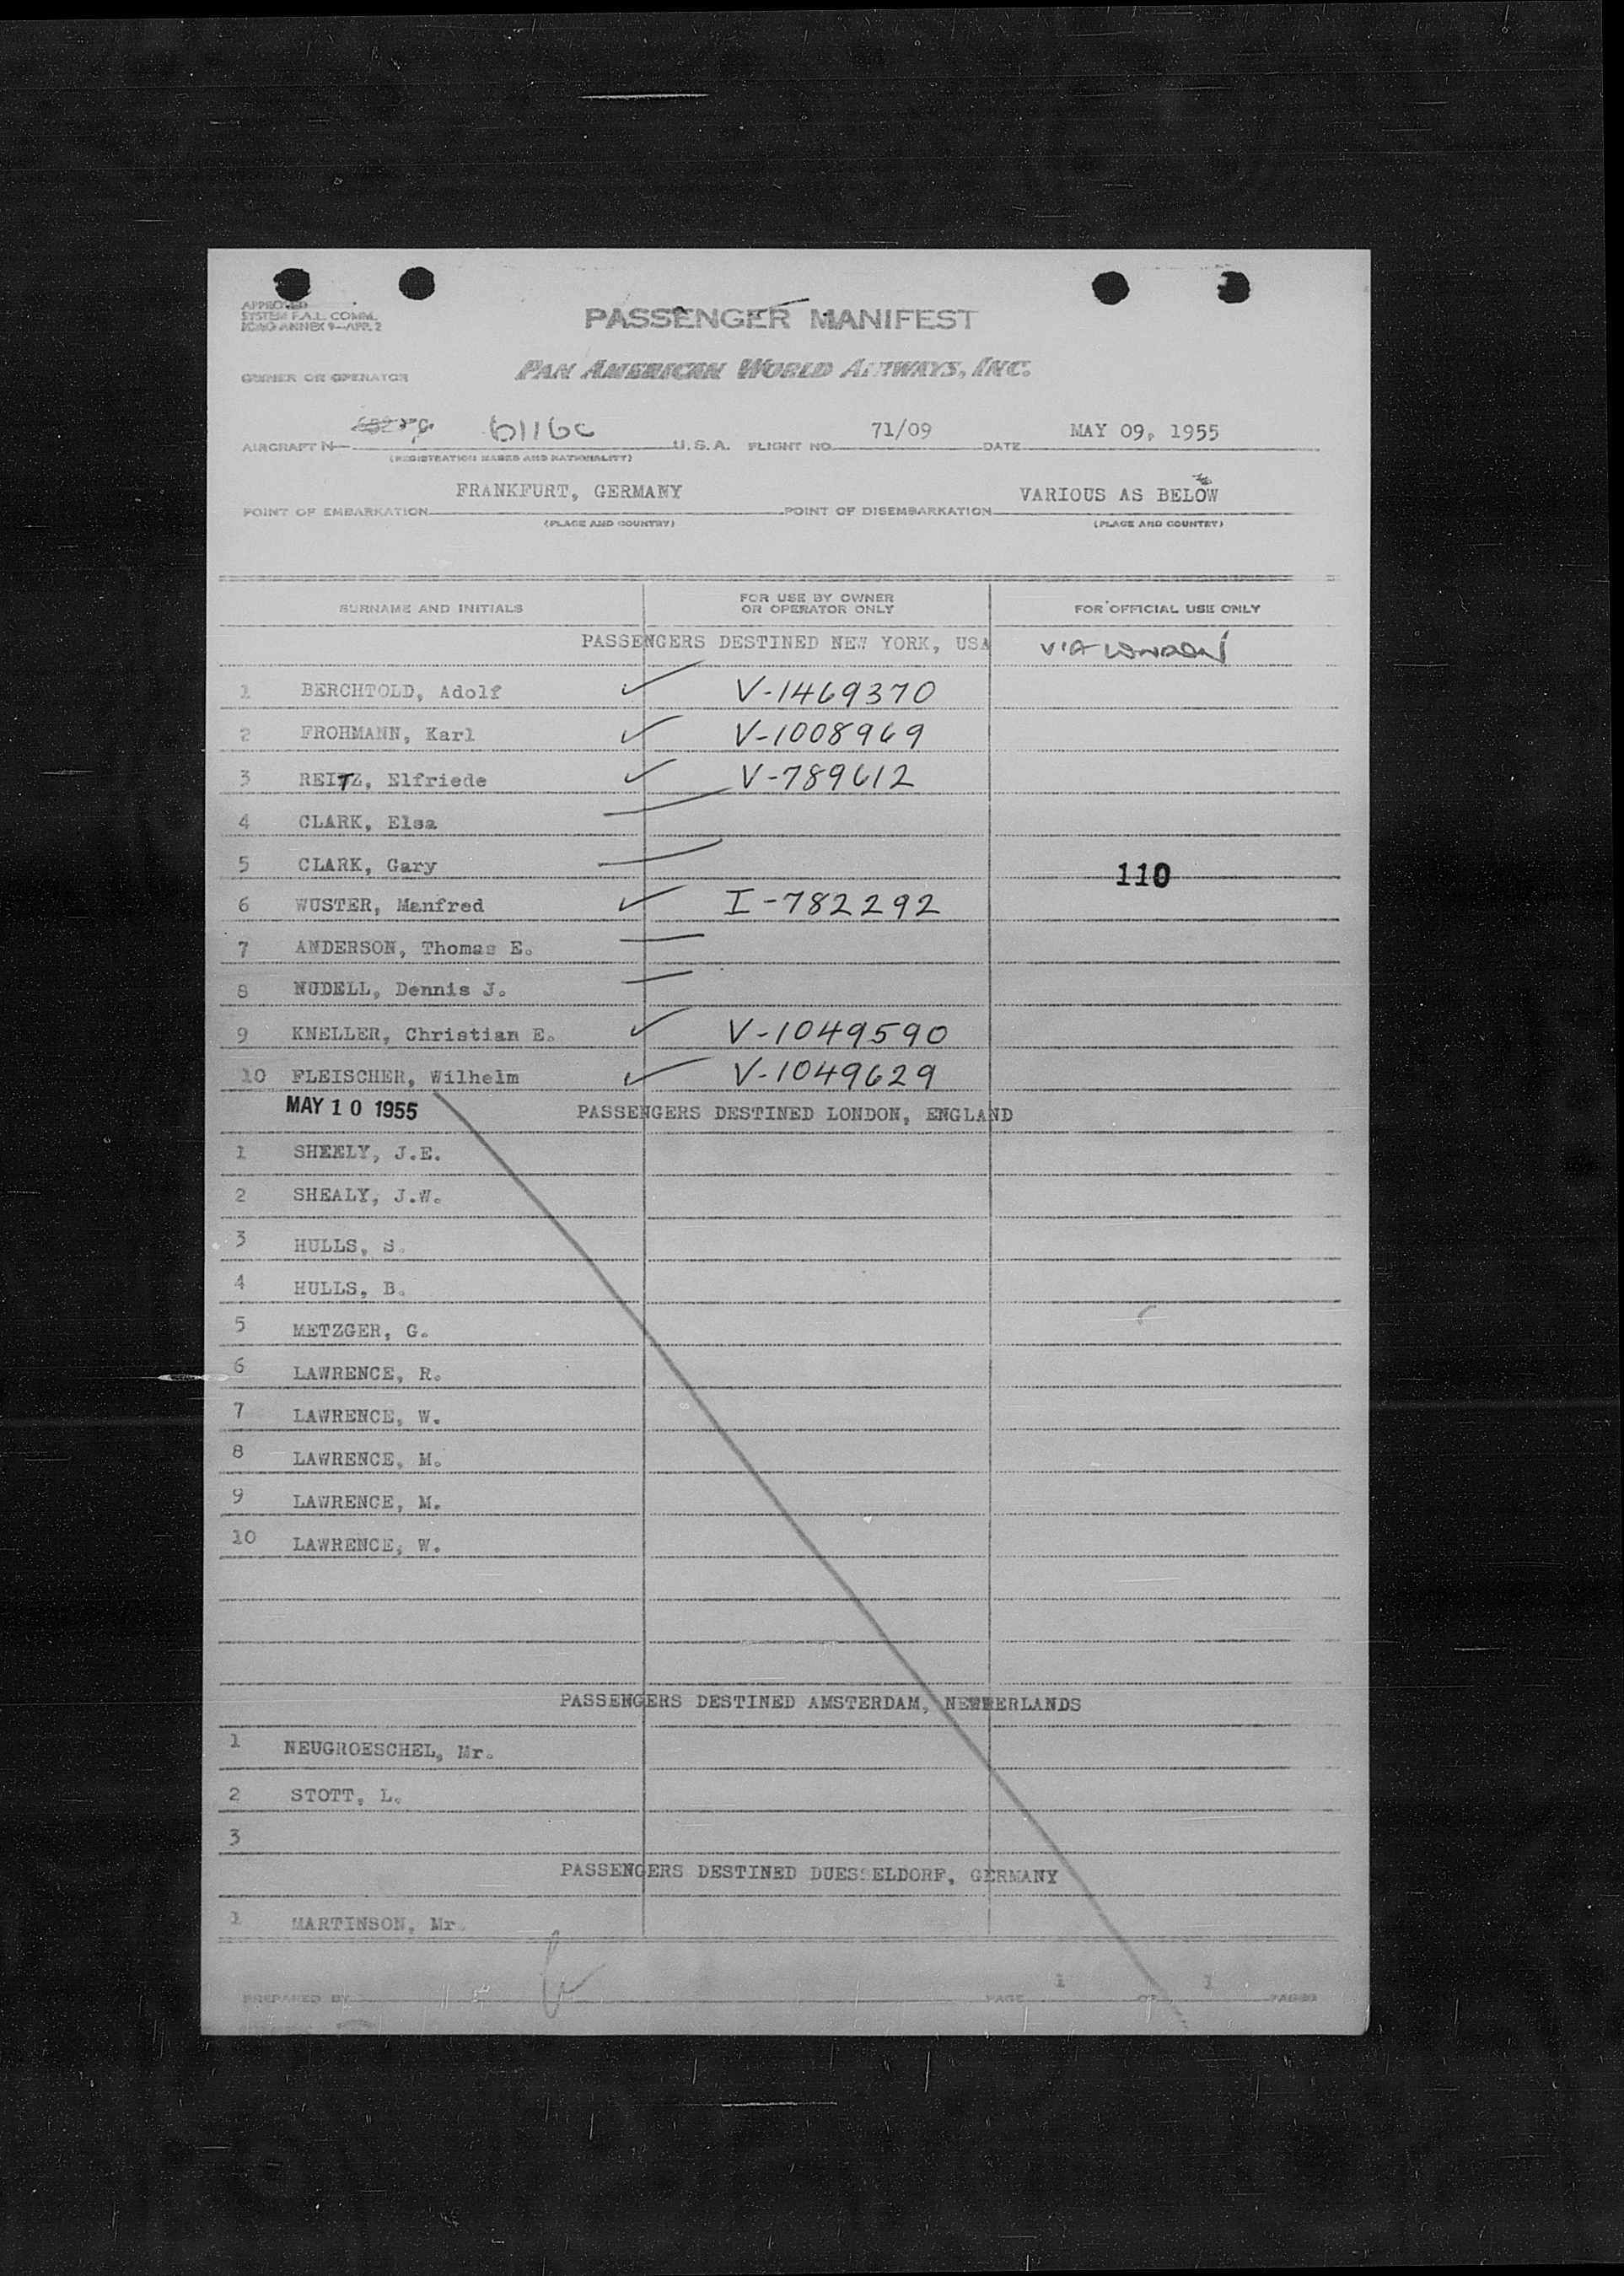 APPROVED
SYSTEM F.A.L. COMM.
ICAO ANNEX 9—APP. 2
PASSENGER MANIFEST
OWNER OR OPERATOR PAN AMERICAN WORLD AIRWAYS, INC.
AIRCRAFT N— 6116C U.S.A. FLIGHT NO. 71/09 DATE MAY 09, 1955
(REGISTRATION MARKS AND NATIONALITY)
POINT OF EMBARKATION FRANKFURT, GERMANY POINT OF DISEMBARKATION VARIOUS AS BELOW
(PLACE AND COUNTRY) (PLACE AND COUNTRY)
SURNAME AND INITIALS FOR USE BY OWNER OR OPERATOR ONLY FOR OFFICIAL USE ONLY
PASSENGERS DESTINED NEW YORK, USA VIA LONDON
1 BERCHTOLD, Adolf ✓ V-1469370
2 FROHMANN, Karl ✓ V-1008969
3 REITZ, Elfriede ✓ V-789612
4 CLARK, Elsa
5 CLARK, Gary
110
6 WUSTER, Manfred ✓ I-782292
7 ANDERSON, Thomas E.
8 NUDELL, Dennis J.
9 KNELLER, Christian E. ✓ V-1049590
10 FLEISCHER, Wilhelm ✓ V-1049629
MAY 10 1955 PASSENGERS DESTINED LONDON, ENGLAND
1 SHEELY, J.E.
2 SHEALY, J.W.
3 HULLS, S.
4 HULLS, B.
5 METZGER, G.
6 LAWRENCE, R.
7 LAWRENCE, W.
8 LAWRENCE, M.
9 LAWRENCE, M.
10 LAWRENCE, W.
PASSENGERS DESTINED AMSTERDAM, NETHERLANDS
1 NEUGROESCHEL, Mr.
2 STOTT, L.
3
PASSENGERS DESTINED DUESSELDORF, GERMANY
1 MARTINSON, Mr.
PREPARED BY PAGE 1 OF 1 PAGES